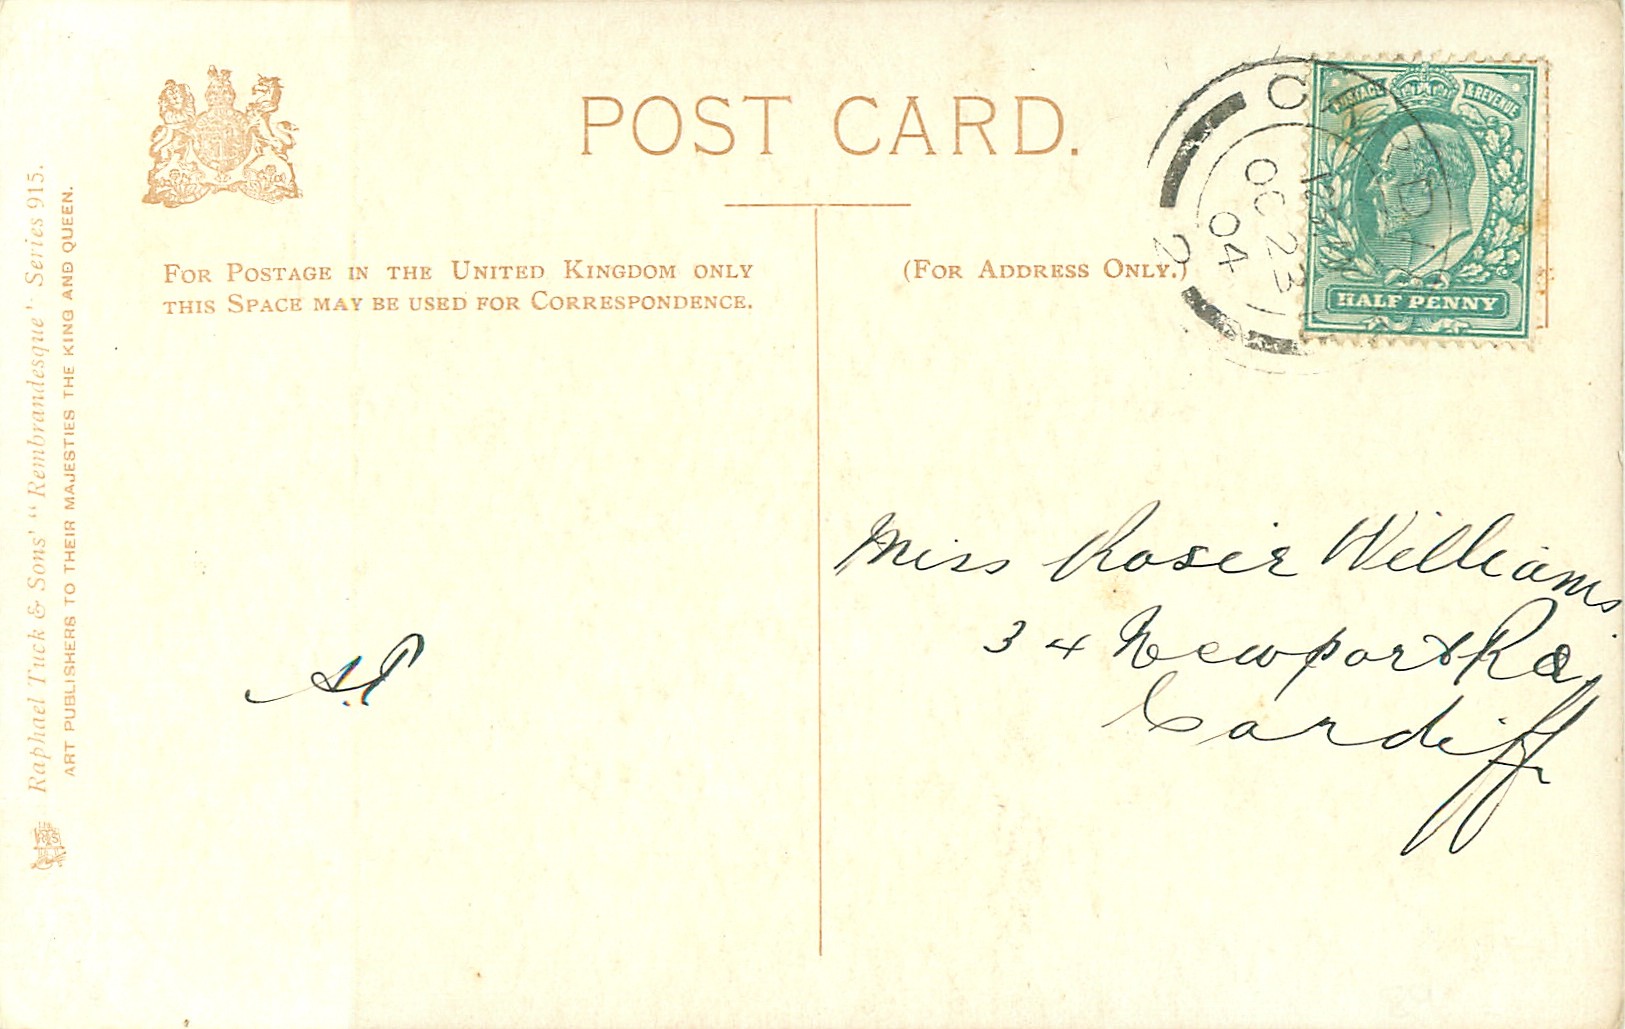 POST CARD.
FOR POSTAGE IN THE UNITED KINGDOM ONLY
THIS SPACE MAY BE USED FOR CORRESPONDENCE.
(FOR ADDRESS ONLY.)
POSTAGE & REVENUE
HALF PENNY
OC 23
04
2
Raphael Tuck & Sons' "Rembrandesque" Series 915.
ART PUBLISHERS TO THEIR MAJESTIES THE KING AND QUEEN.
Miss Rosie Williams
34 Newport Rd
Cardiff